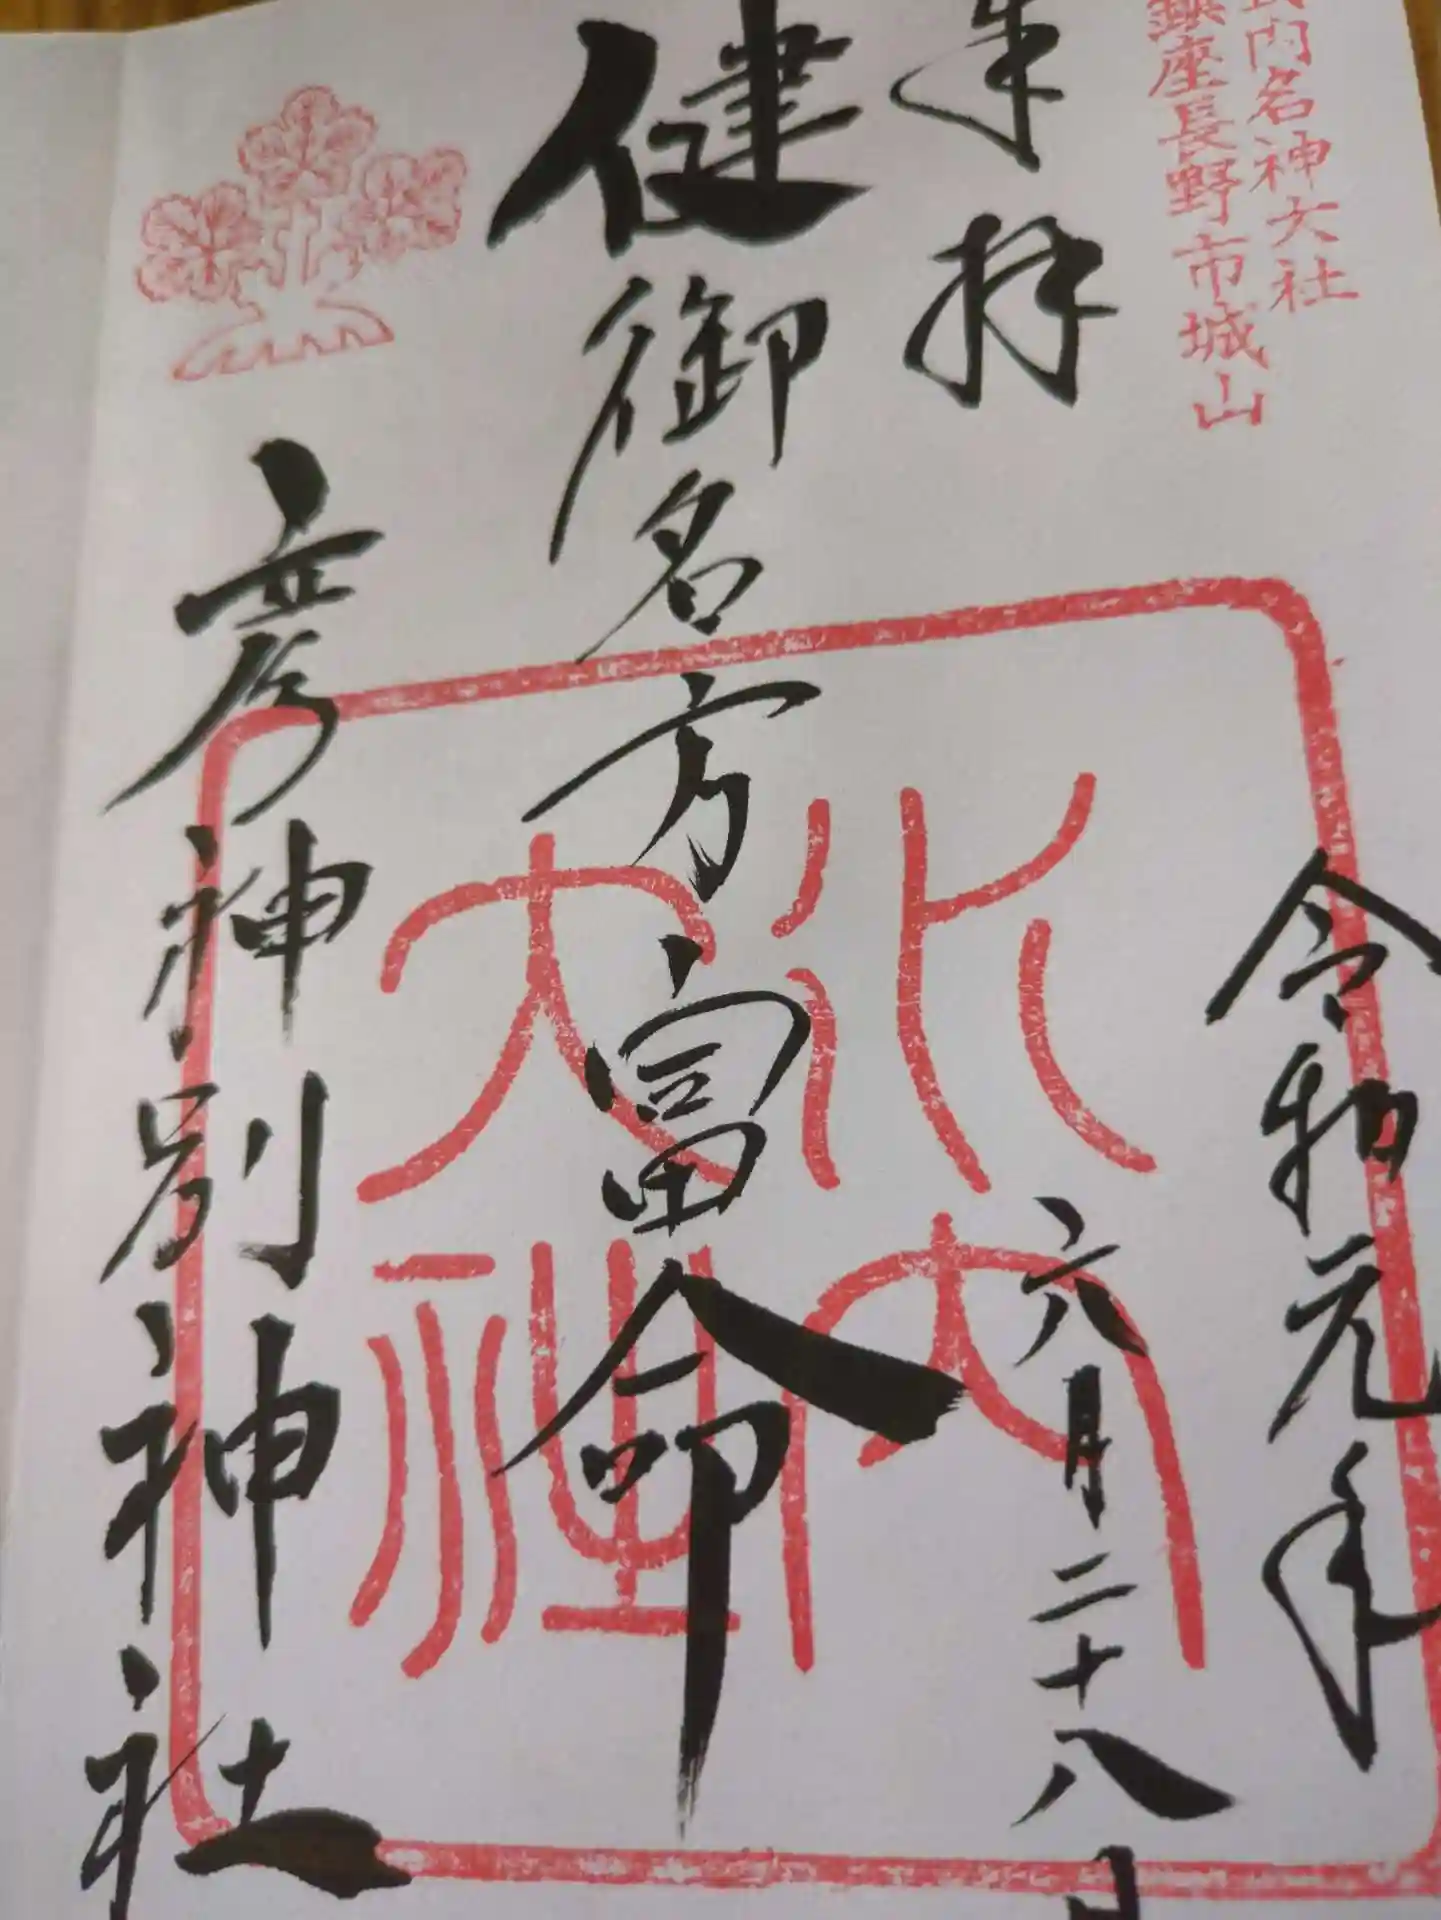 式内名神大社
鎮座長野市城山
奉拝
令和元年
六月二十八日
健御名方富命
彦神別神社
水内大社